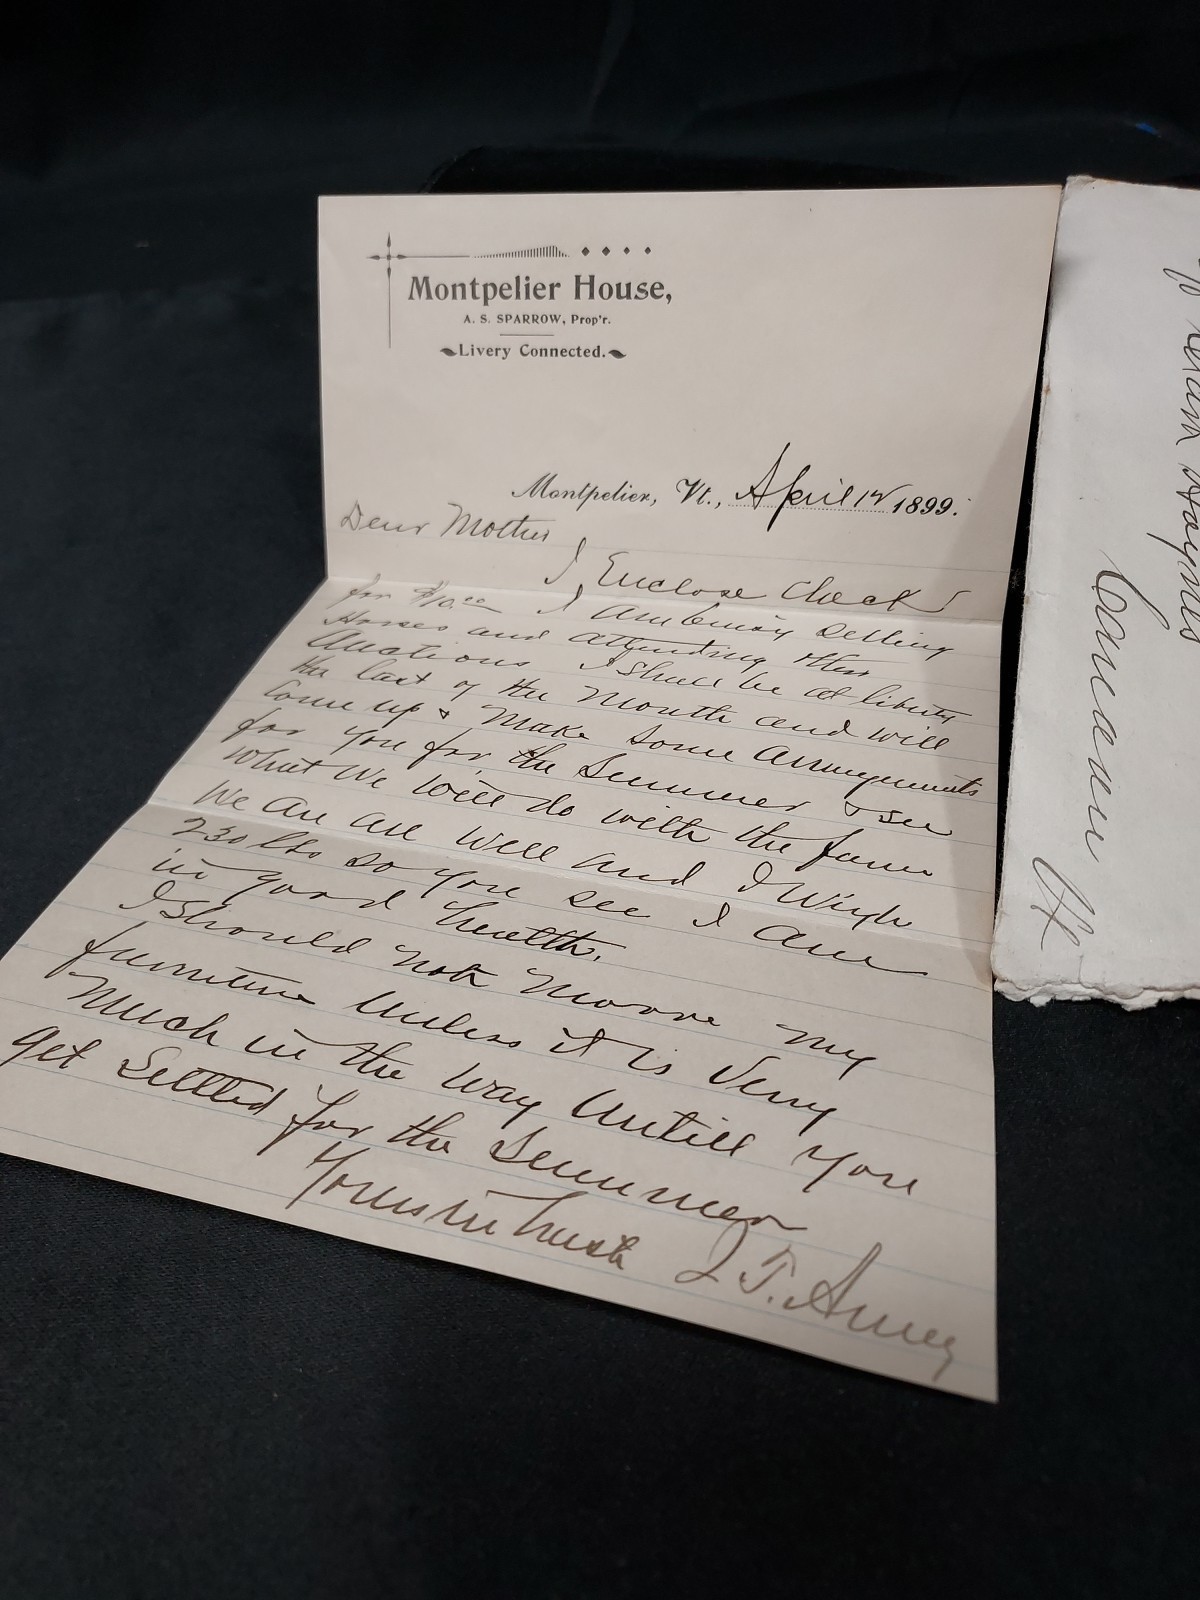 Montpelier House,
A. S. SPARROW, Prop'r.
Livery Connected.
Montpelier, Vt., April 12 1899.
Dear Mother
I Enclose Check
for $10.00 I am busy Selling
Horses and attending
Auctions I Shall be at liberty
the last of the Month and will
Come up & Make Some Arrangements
for you for the Summer & see
What We Will do with the farm
We are all Well and I Weigh
230 lbs so you see I am
in good health.
I Should not Moove My
furniture Unless it is Very
Much in the way Untill you
get Settled for the Summer
Yours in haste
T. Amey
Canaan
Vt